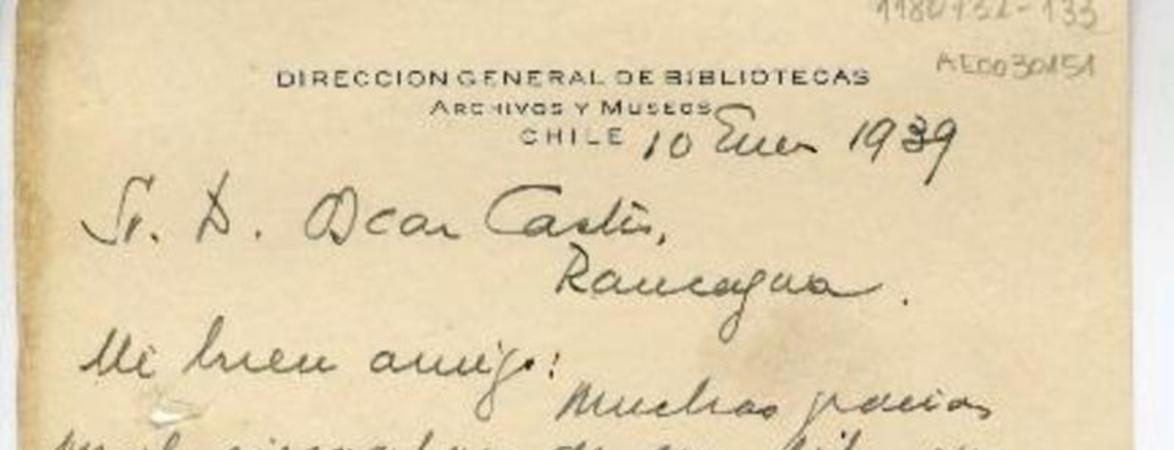 1180732-133
AE0030151
DIRECCION GENERAL DE BIBLIOTECAS
ARCHIVOS Y MUSEOS
CHILE 10 Enero 1939
Sr. D. Oscar Castro,
Rancagua.
Mi buen amigo:
Muchas gracias